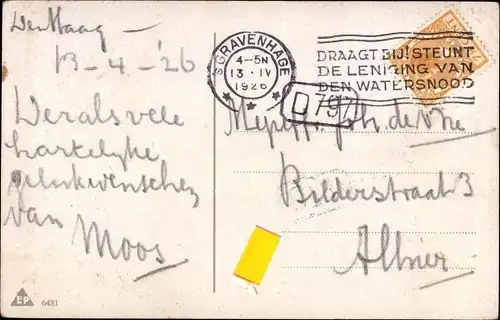 Den Haag –
13-4-'26
Weral vele
hartelyke
gelukwenschen
van
Moos
'S GRAVENHAGE
4-5N
13·IV
1926
DRAAGT BIJ! STEUNT
DE LENIGING VAN
DEN WATERSNOOD
D797
Mejuff. Joh. de
Bilderstraat 3
Alhier
LEP
6481